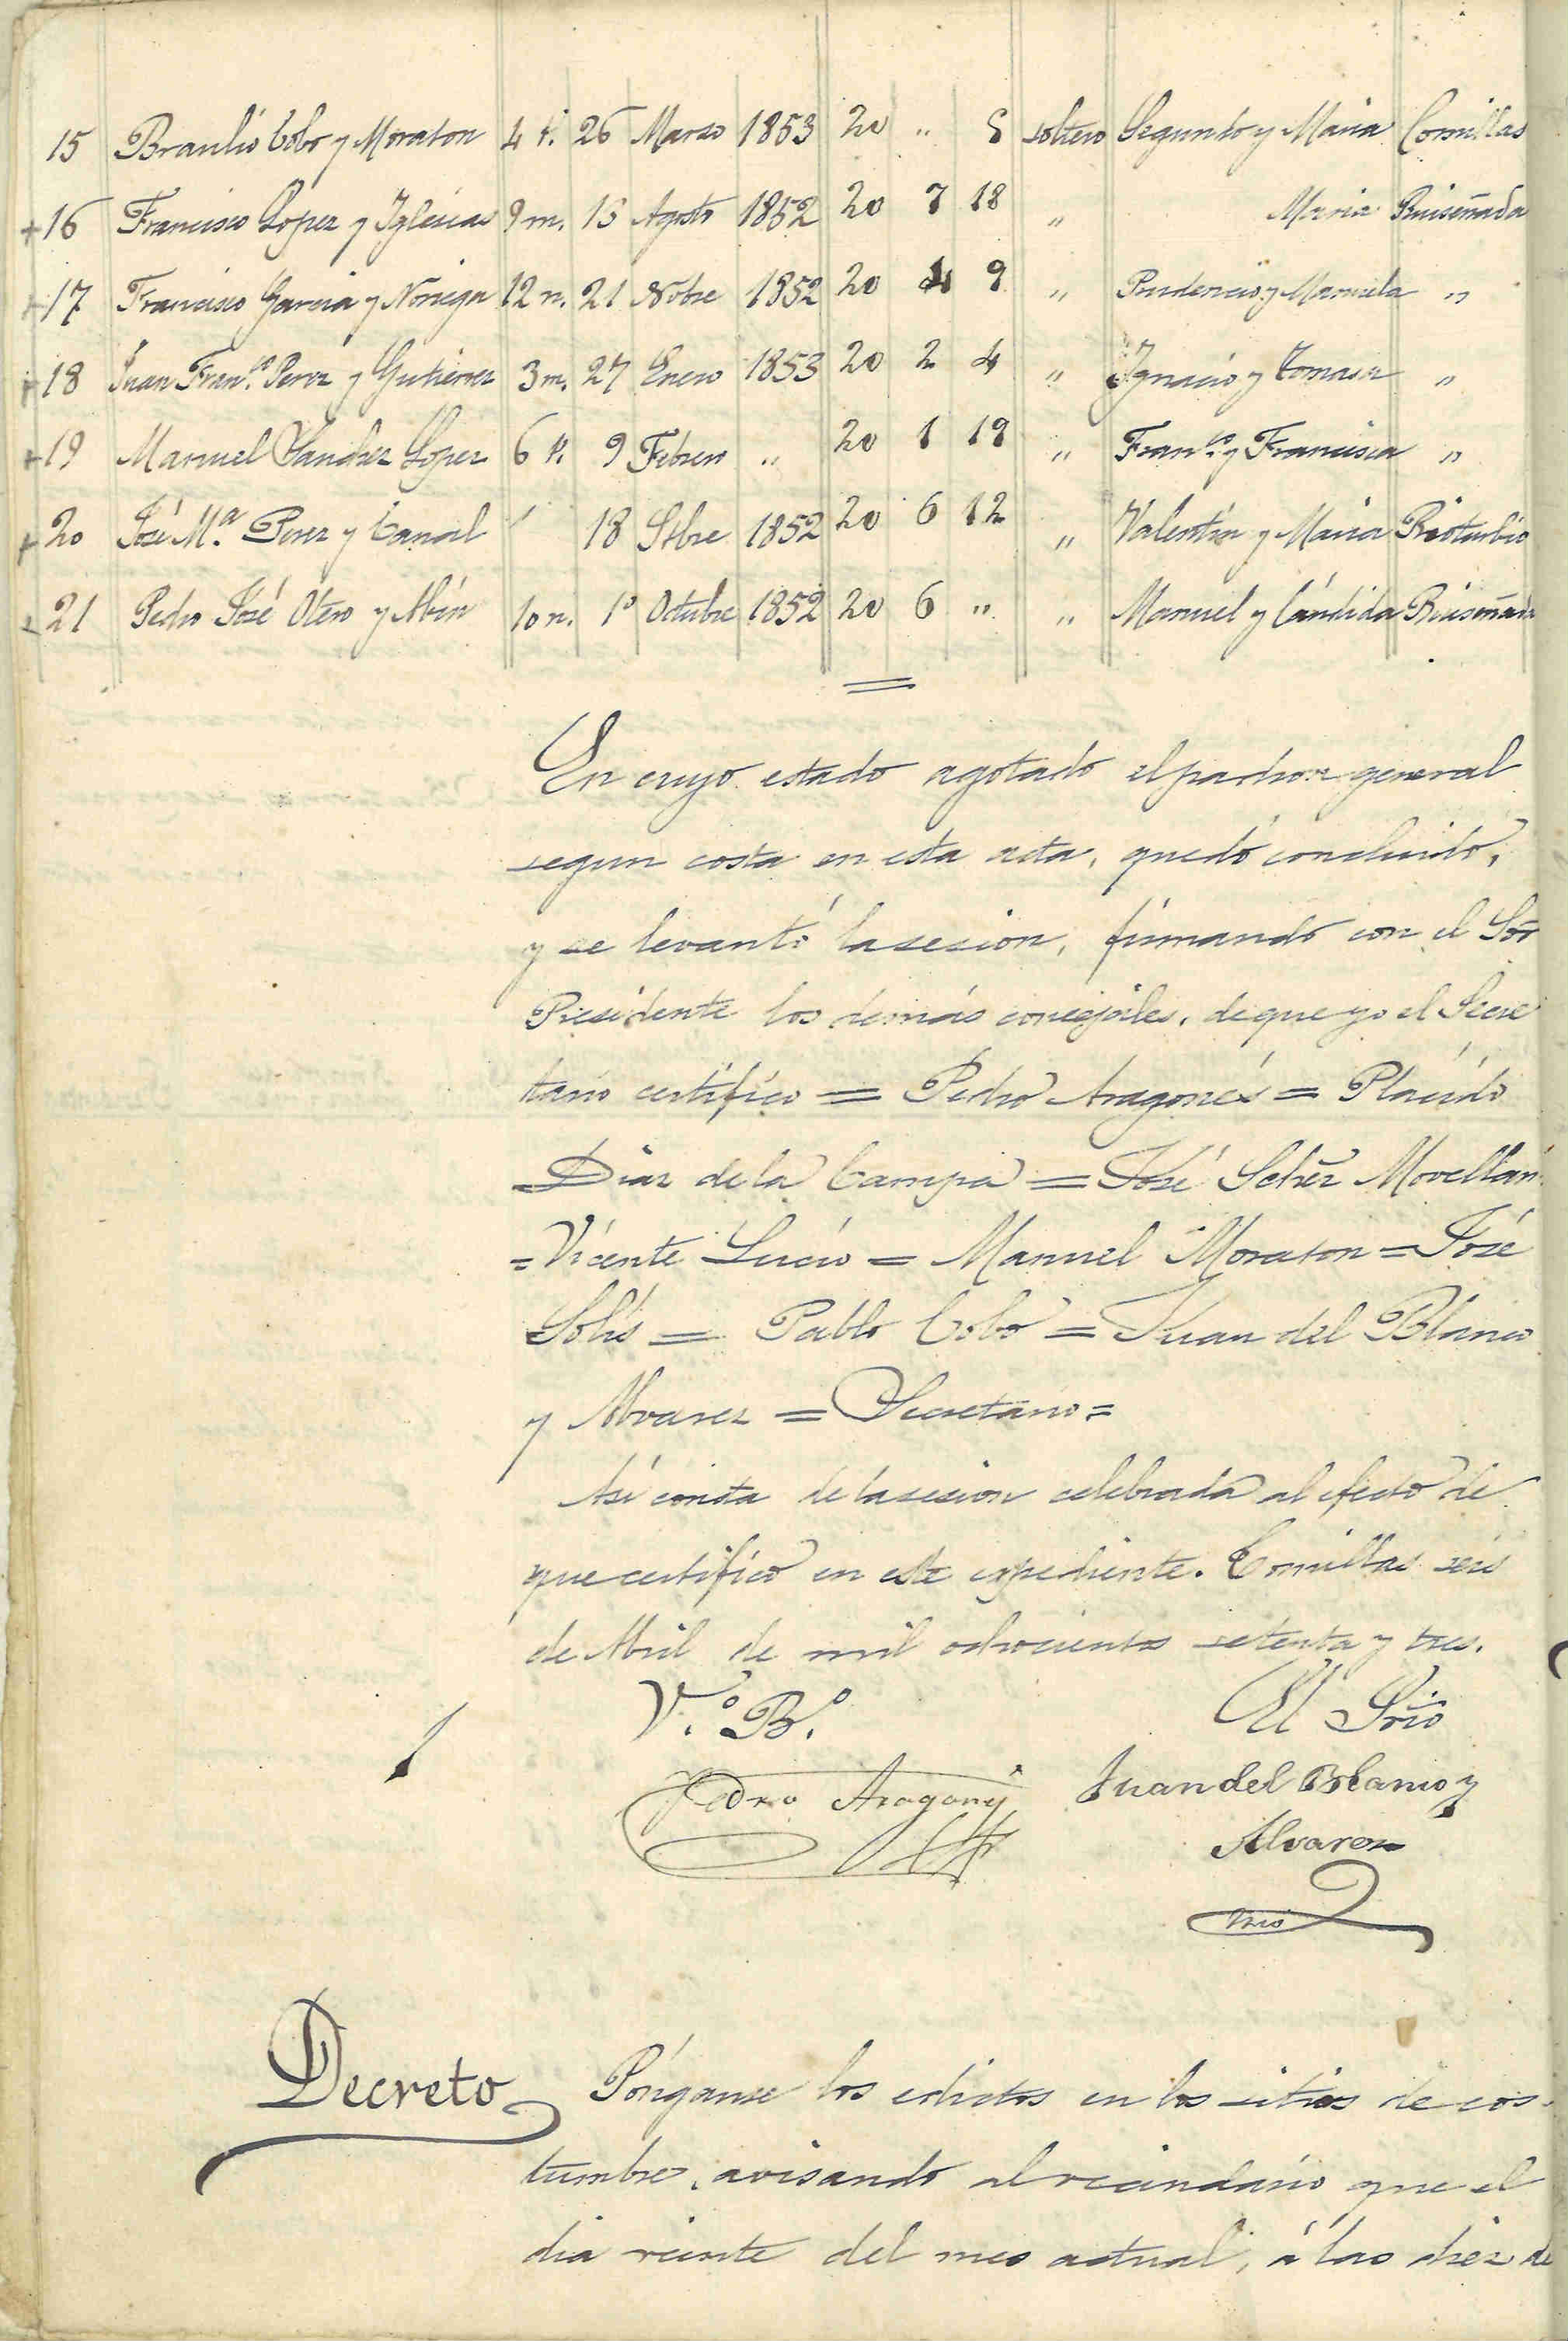 15 Braulio Cobo y Moraton 4 t. 26 Marzo 1853 20 " 5 soltero Segundo y Maria Comillas
+16 Francisco Lopez y Yglesias 9 m. 13 Agosto 1852 20 7 18 " Maria Ruiseñada
+17 Francisco Garcia y Noriega 12 n. 21 Nobre 1852 20 4 9 " Prudencio y Manuela "
+18 Juan Fran.co Perez y Gutierrez 3 m. 27 Enero 1853 20 2 4 " Ygnacio y Tomasa "
+19 Manuel Sanchez Lopez 6 t. 9 Febrero " 20 1 19 " Fran.co y Francisca "
+20 José M.a Perez y Canal 18 Stbre 1852 20 6 12 " Valentin y Maria Rioturbio
+21 Pedro José Otero y Abin 10 n. 1º Octubre 1852 20 6 " " Manuel y Cándida Ruiseñada
En cuyo estado agotado el padron general
segun costa en esta acta, quedó concluido,
y se levantó la sesion, firmando con el Sor
Presidente los demás concejales, de que yo el Secre
tario certifico = Pedro Aragonés = Placido
Diaz de la Campa = José Schez Movellán
= Vicente Lucio = Manuel Moraton = José
Solis = Pablo Cobo = Juan del Blanco
y Alvarez = Secretario =
Así consta de la sesion celebrada al efecto de
que certifico en este expediente. Comillas seis
de Abril de mil ochocientos setenta y tres.
V.º B.º El Srio
Pedro Aragonés Juan del Blanco y
Alvarez
Srio
Decreto Pónganse los edictos en los sitios de cos-
tumbre, avisando al vecindario que el
dia veinte del mes actual, á las diez de